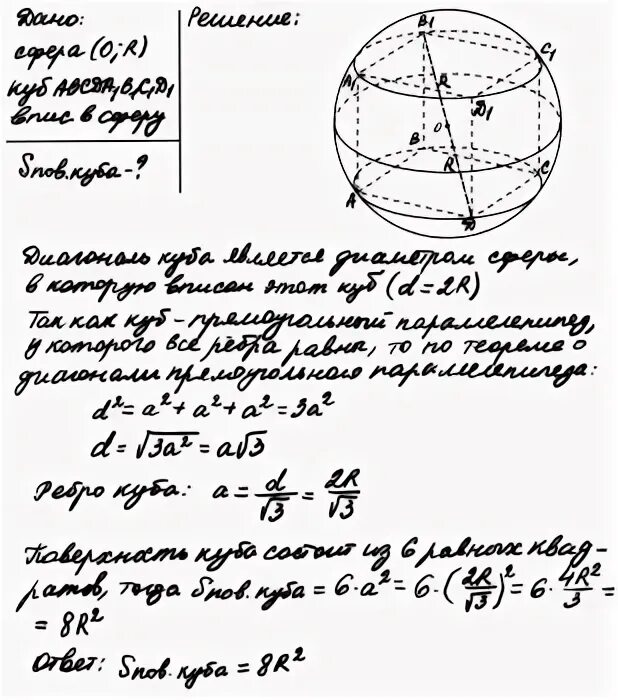 Дано:
сфера (O; R)
куб ABCDA₁B₁C₁D₁
впис в сферу
Sпов. куба - ?
Решение:
B₁
C₁
A₁
R
D₁
O
B
R
C
A
D
Диагональ куба является диаметром сферы,
в которую вписан этот куб (d = 2R)
Так как куб - прямоугольный параллелепипед,
у которого все рёбра равны, то по теореме о
диагонали прямоугольного параллелепипеда:
d² = a² + a² + a² = 3a²
d = √3a² = a√3
Ребро куба: a = d/√3 = 2R/√3
Поверхность куба состоит из 6 равных квад-
ратов, тогда Sпов. куба = 6·a² = 6·(2R/√3)² = 6·4R²/3 =
= 8R²
Ответ: Sпов. куба = 8R²